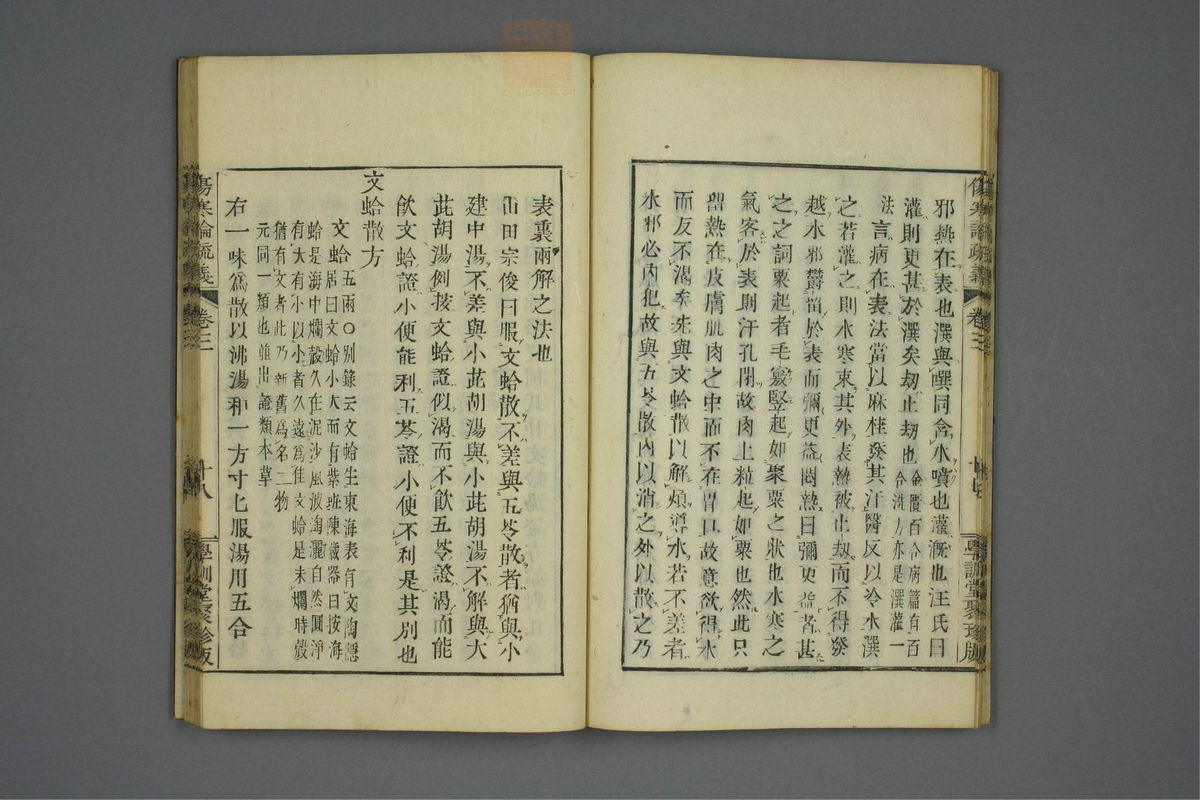 邪熱在表也潠與噀同含水噴也灌漑也汪氏曰
灌則更甚於潠矣劫止劫也金匱百合病篇有百
合洗方亦是潠灌一
法言病在表法當以麻桂發其汗醫反以冷水潠
之若灌之則水寒束其外表熱被止劫而不得發
越水邪鬱畱於表而彌更益悶熱曰彌更益者甚
之之詞粟起者毛竅竪起如聚粟之狀也水寒之
氣客於表則汗孔閉故肉上粒起如粟也然此只
畱熱在皮膚肌肉之中而不在胃口故意欲得水
而反不渴矣先與文蛤散以解煩導水若不差者
水邪必內犯故與五苓散內以消之外以散之乃
傷寒論疏義
卷三
學訓堂聚珍版
表裏兩解之法也
山田宗俊曰服文蛤散不差與五苓散者猶與小
建中湯不差與小茈胡湯與小茈胡湯不解與大
茈胡湯例按文蛤證似渴而不飮五苓證渴而能
飮文蛤證小便能利五苓證小便不利是其別也
文蛤散方
文蛤五兩〇別錄云文蛤生東海表有文陶隱
居曰文蛤小大而有紫斑陳藏器曰按海
蛤是海中爛殼久在泥沙風波淘灑自然圓淨
有大有小以小者久遠爲佳文蛤是未爛時殼
猶有文者此乃新舊爲名二物
元同一類也並出證類本草
右一味爲散以沸湯和一方寸匕服湯用五合
傷寒論疏義
卷三
十八
學訓堂聚珍版